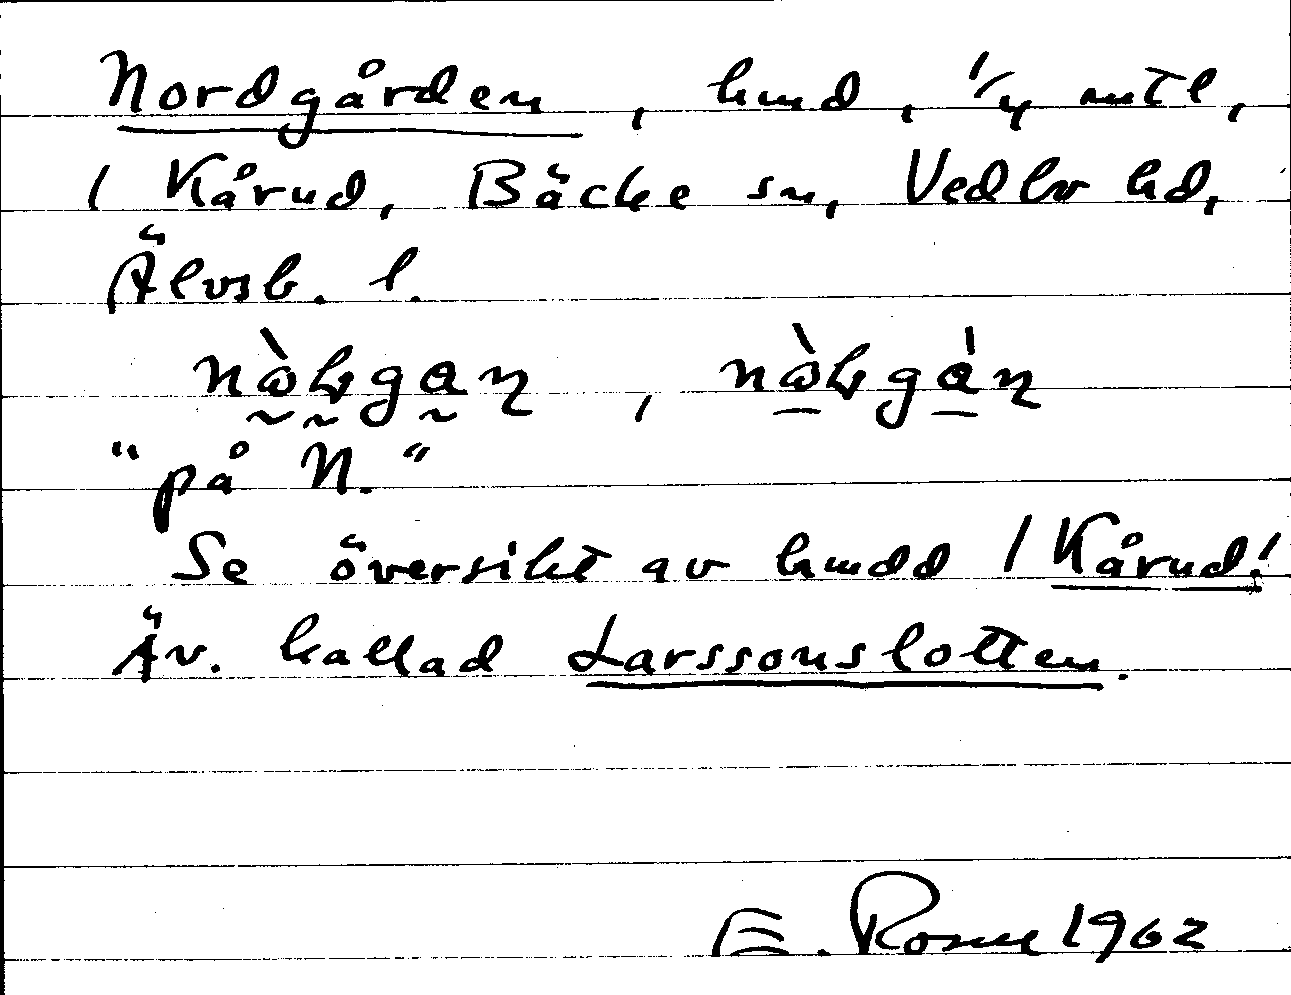 Nordgården, hmd, 1/4 mtl,
i Kårud, Bäcke sn, Vedbo hd,
Älvsb. l.
"på N."
Se översikt av hmdd i Kårud!
Äv. kallad Larssonslotten.
E. Rosell 1962